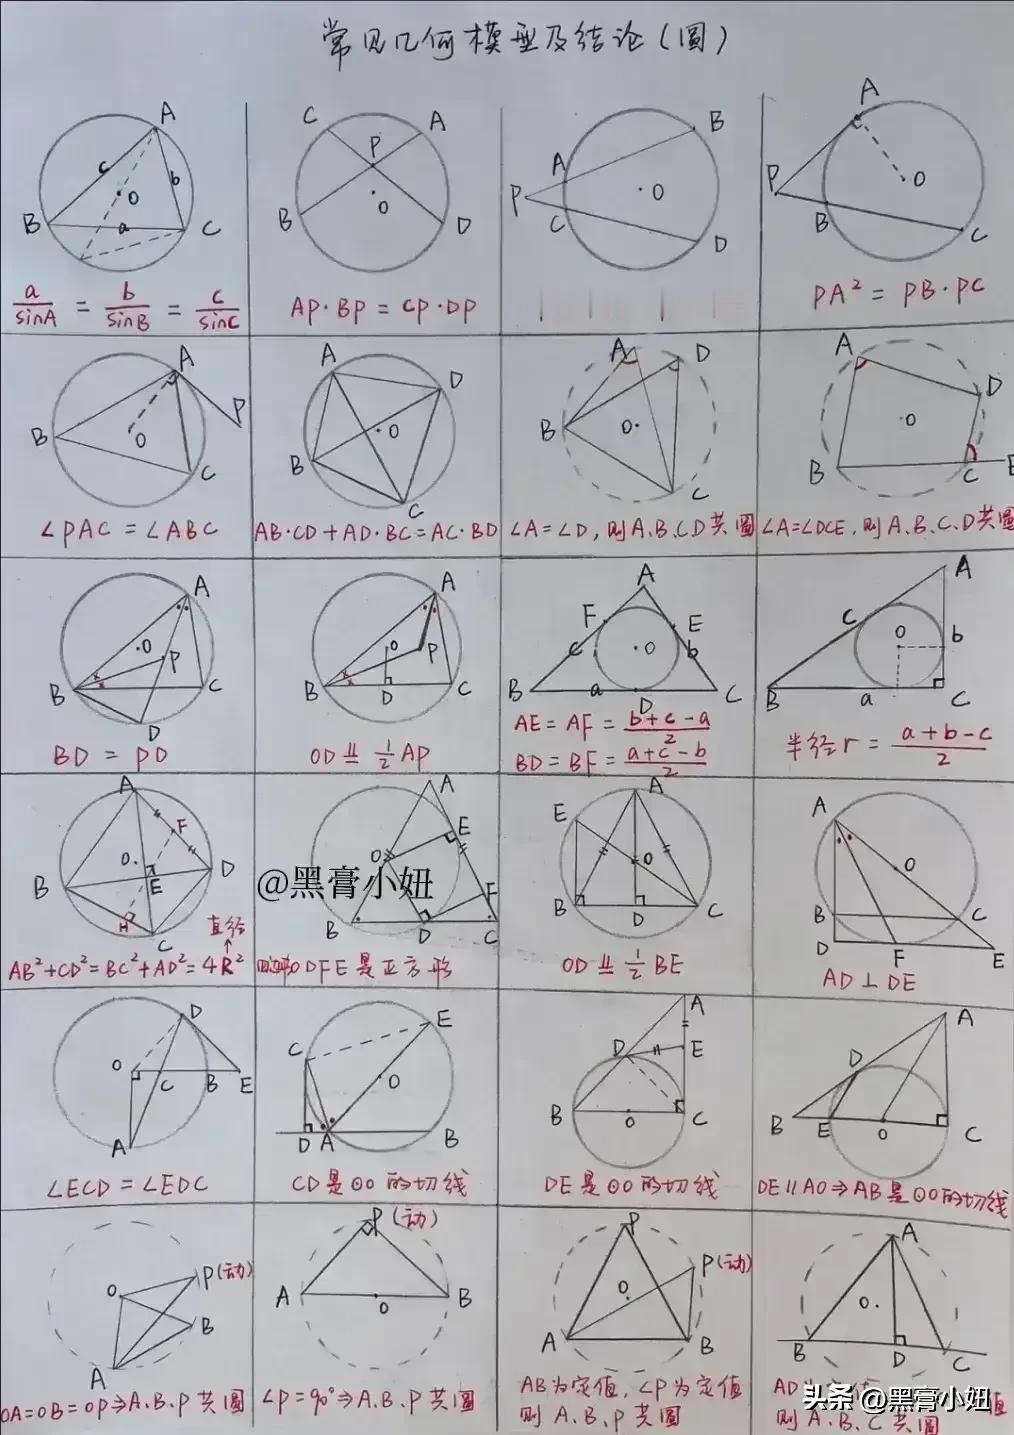 常见几何模型及结论(圆)
A
c
b
O
B
a
C
a/sinA = b/sinB = c/sinC
C
A
P
O
B
D
AP·BP = CP·DP
B
A
P
O
C
D
A
P
O
B
C
PA² = PB·PC
A
P
B
O
C
∠PAC = ∠ABC
A
D
O
B
C
AB·CD+AD·BC=AC·BD
A
D
B
O
C
∠A=∠D,则A.B.C.D共圆
A
D
O
B
C
E
∠A=∠DCE,则A.B.C.D共圆
A
O
P
B
C
D
BD = PD
A
O
P
B
D
C
OD ⫫ 1/2 AP
A
F
E
c
O
b
B
a
D
C
AE = AF = (b+c-a)/2
BD = BF = (a+c-b)/2
A
c
O
b
B
a
C
半径r = (a+b-c)/2
A
F
O
D
B
E
H
C
直径
↑
AB²+CD²=BC²+AD²=4R²
A
E
O
F
B
D
C
@黑膏小妞
ODFE是正方形
A
E
O
B
D
C
OD ⫫ 1/2 BE
A
O
B
C
D
F
E
AD⊥DE
D
O
C
B
E
A
∠ECD = ∠EDC
E
C
O
D
A
B
CD是⊙O的切线
A
D
E
B
O
C
DE是⊙O的切线
A
D
B
E
O
C
DE∥AO⇒AB是⊙O的切线
P(动)
O
B
A
OA=OB=OP⇒A.B.P共圆
P(动)
A
O
B
∠P=90°⇒A.B.P共圆
P
P(动)
O
A
B
AB为定值,∠P为定值
则A.B.P共圆
A
O
B
D
C
AD
值
则A.B.C共圆
头条 @黑膏小妞